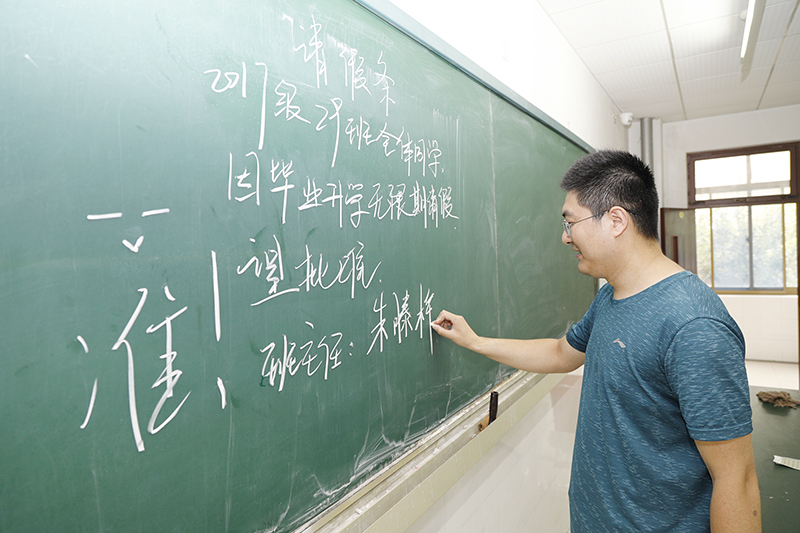 请假条
2017级29班全体同学,
因毕业升学无限期请假
望批准.
班主任: 朱
准!